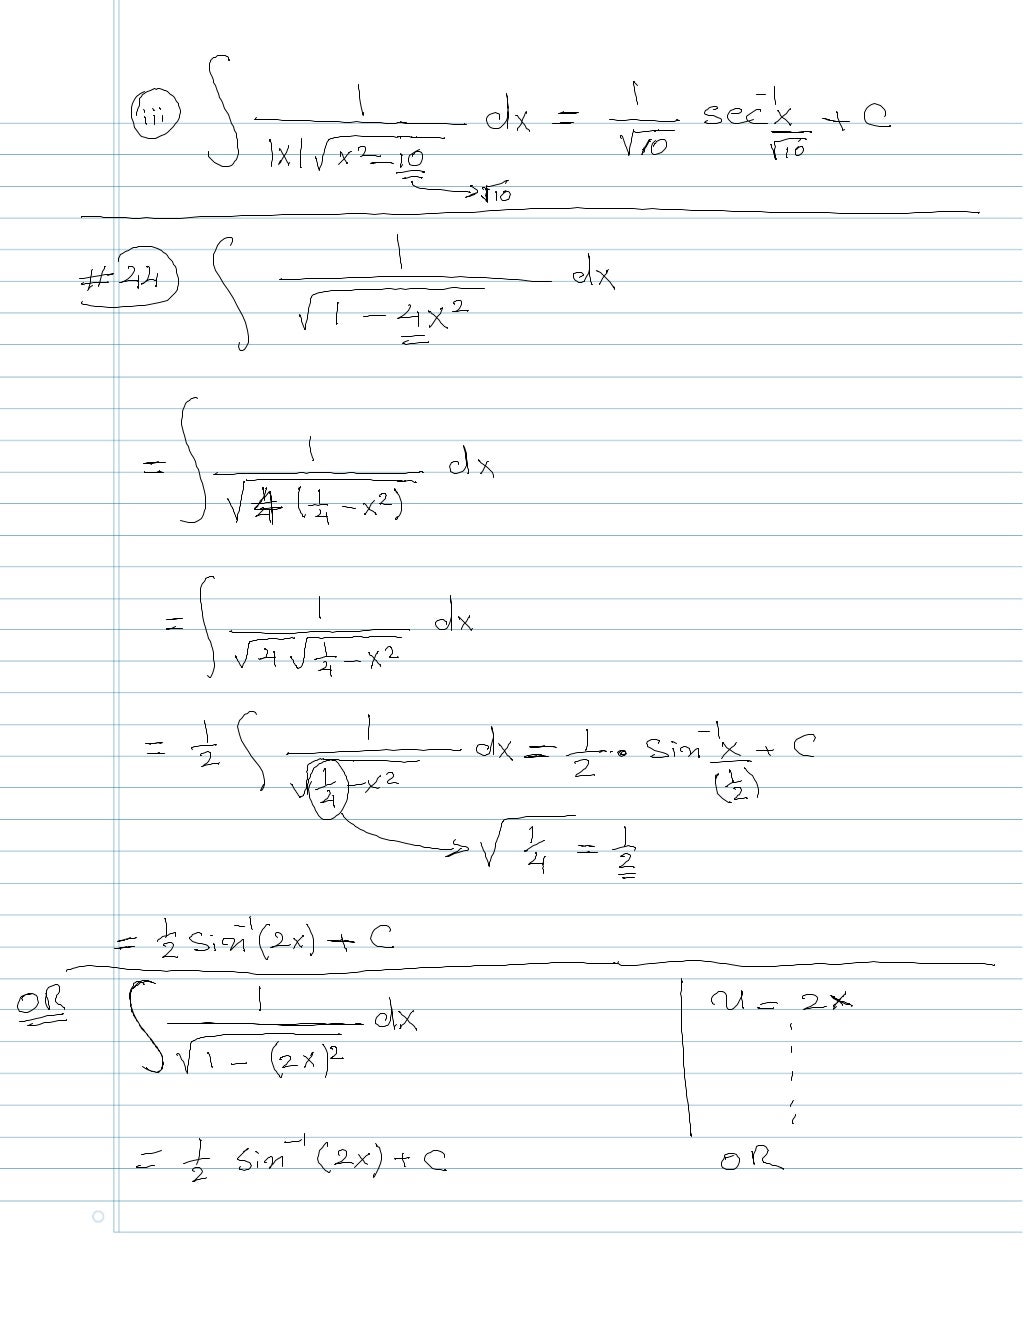 (iii) ∫ 1/(|x|√(x²-10)) dx = 1/√10 sec⁻¹ x/√10 + C
→ √10
#44 ∫ 1/√(1 - 4x²) dx
= ∫ 1/√(4(1/4 - x²)) dx
= ∫ 1/(√4 √(1/4 - x²)) dx
= 1/2 ∫ 1/√(1/4 - x²) dx = 1/2 · sin⁻¹ x/(1/2) + C
→ √(1/4) = 1/2
= 1/2 sin⁻¹(2x) + C
OR ∫ 1/√(1 - (2x)²) dx | u = 2x
= 1/2 sin⁻¹(2x) + C OR